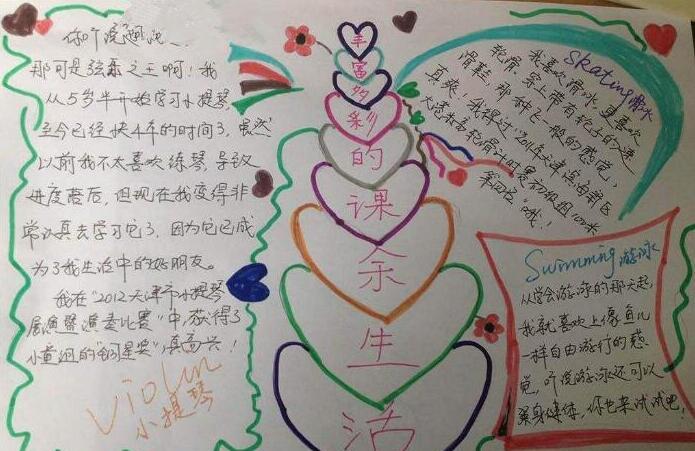 那可是弦乐之王啊!我
从5岁半开始学习小提琴
至今已经快4年的时间了,虽然
以前我不太喜欢练琴,导致
进度落后,但现在我变得非
常认真去学习它了,因为它已成
为了我生活中的好朋友。
我在"2012天津市小提琴
展演暨演奏比赛"中,获得了
小童组的"明星奖",真高兴!
Violin
小提琴
丰
富
多
彩
的
课
余
生
活
Skating 滑冰
我喜欢滑冰,更喜欢
轮滑,穿上带有轮子的速
滑鞋,那种飞一般的感觉,
真爽,我得过"2012年天津滨海新区
大港杯轮滑计时赛初级组100米
第四名"哦!
Swimming 游泳
从学会游泳的那天起,
我就喜欢上像鱼儿
一样自由游行的感
觉,听说游泳还可以
强身健体,你也来试试吧!